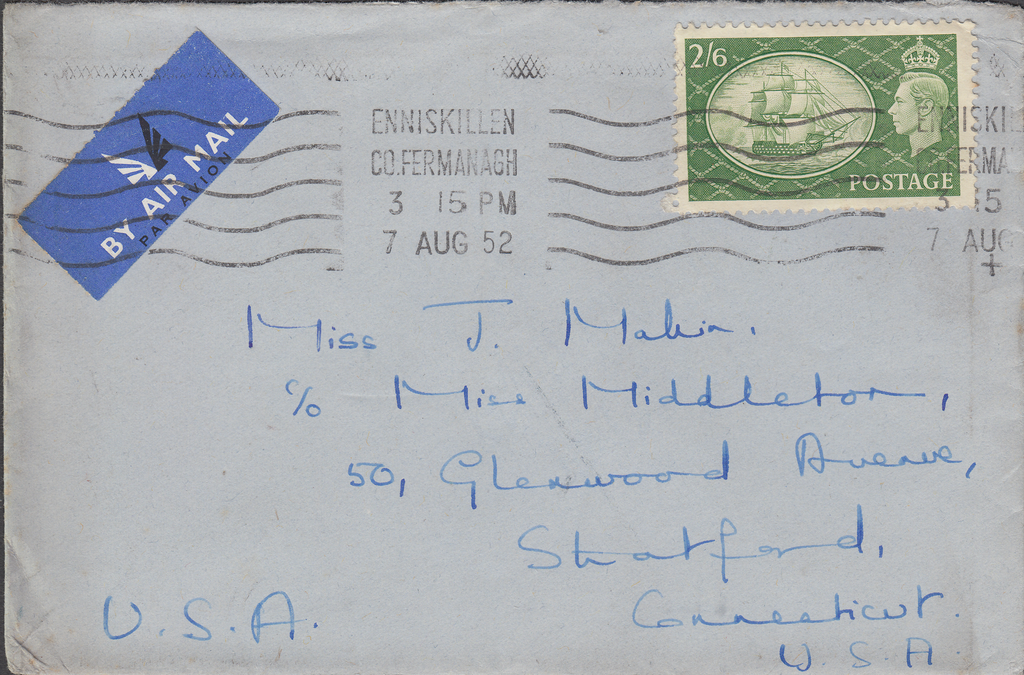 BY AIR MAIL
PAR AVION
ENNISKILLEN
CO.FERMANAGH
3 15 PM
7 AUG 52
2/6
POSTAGE
ENNISKIL
FERMA
3 15
7 AUG
Miss J. Makin.
c/o Miss Middleton,
50, Glenwood Avenue,
Stratford,
Connecticut.
U.S.A.
U.S.A.